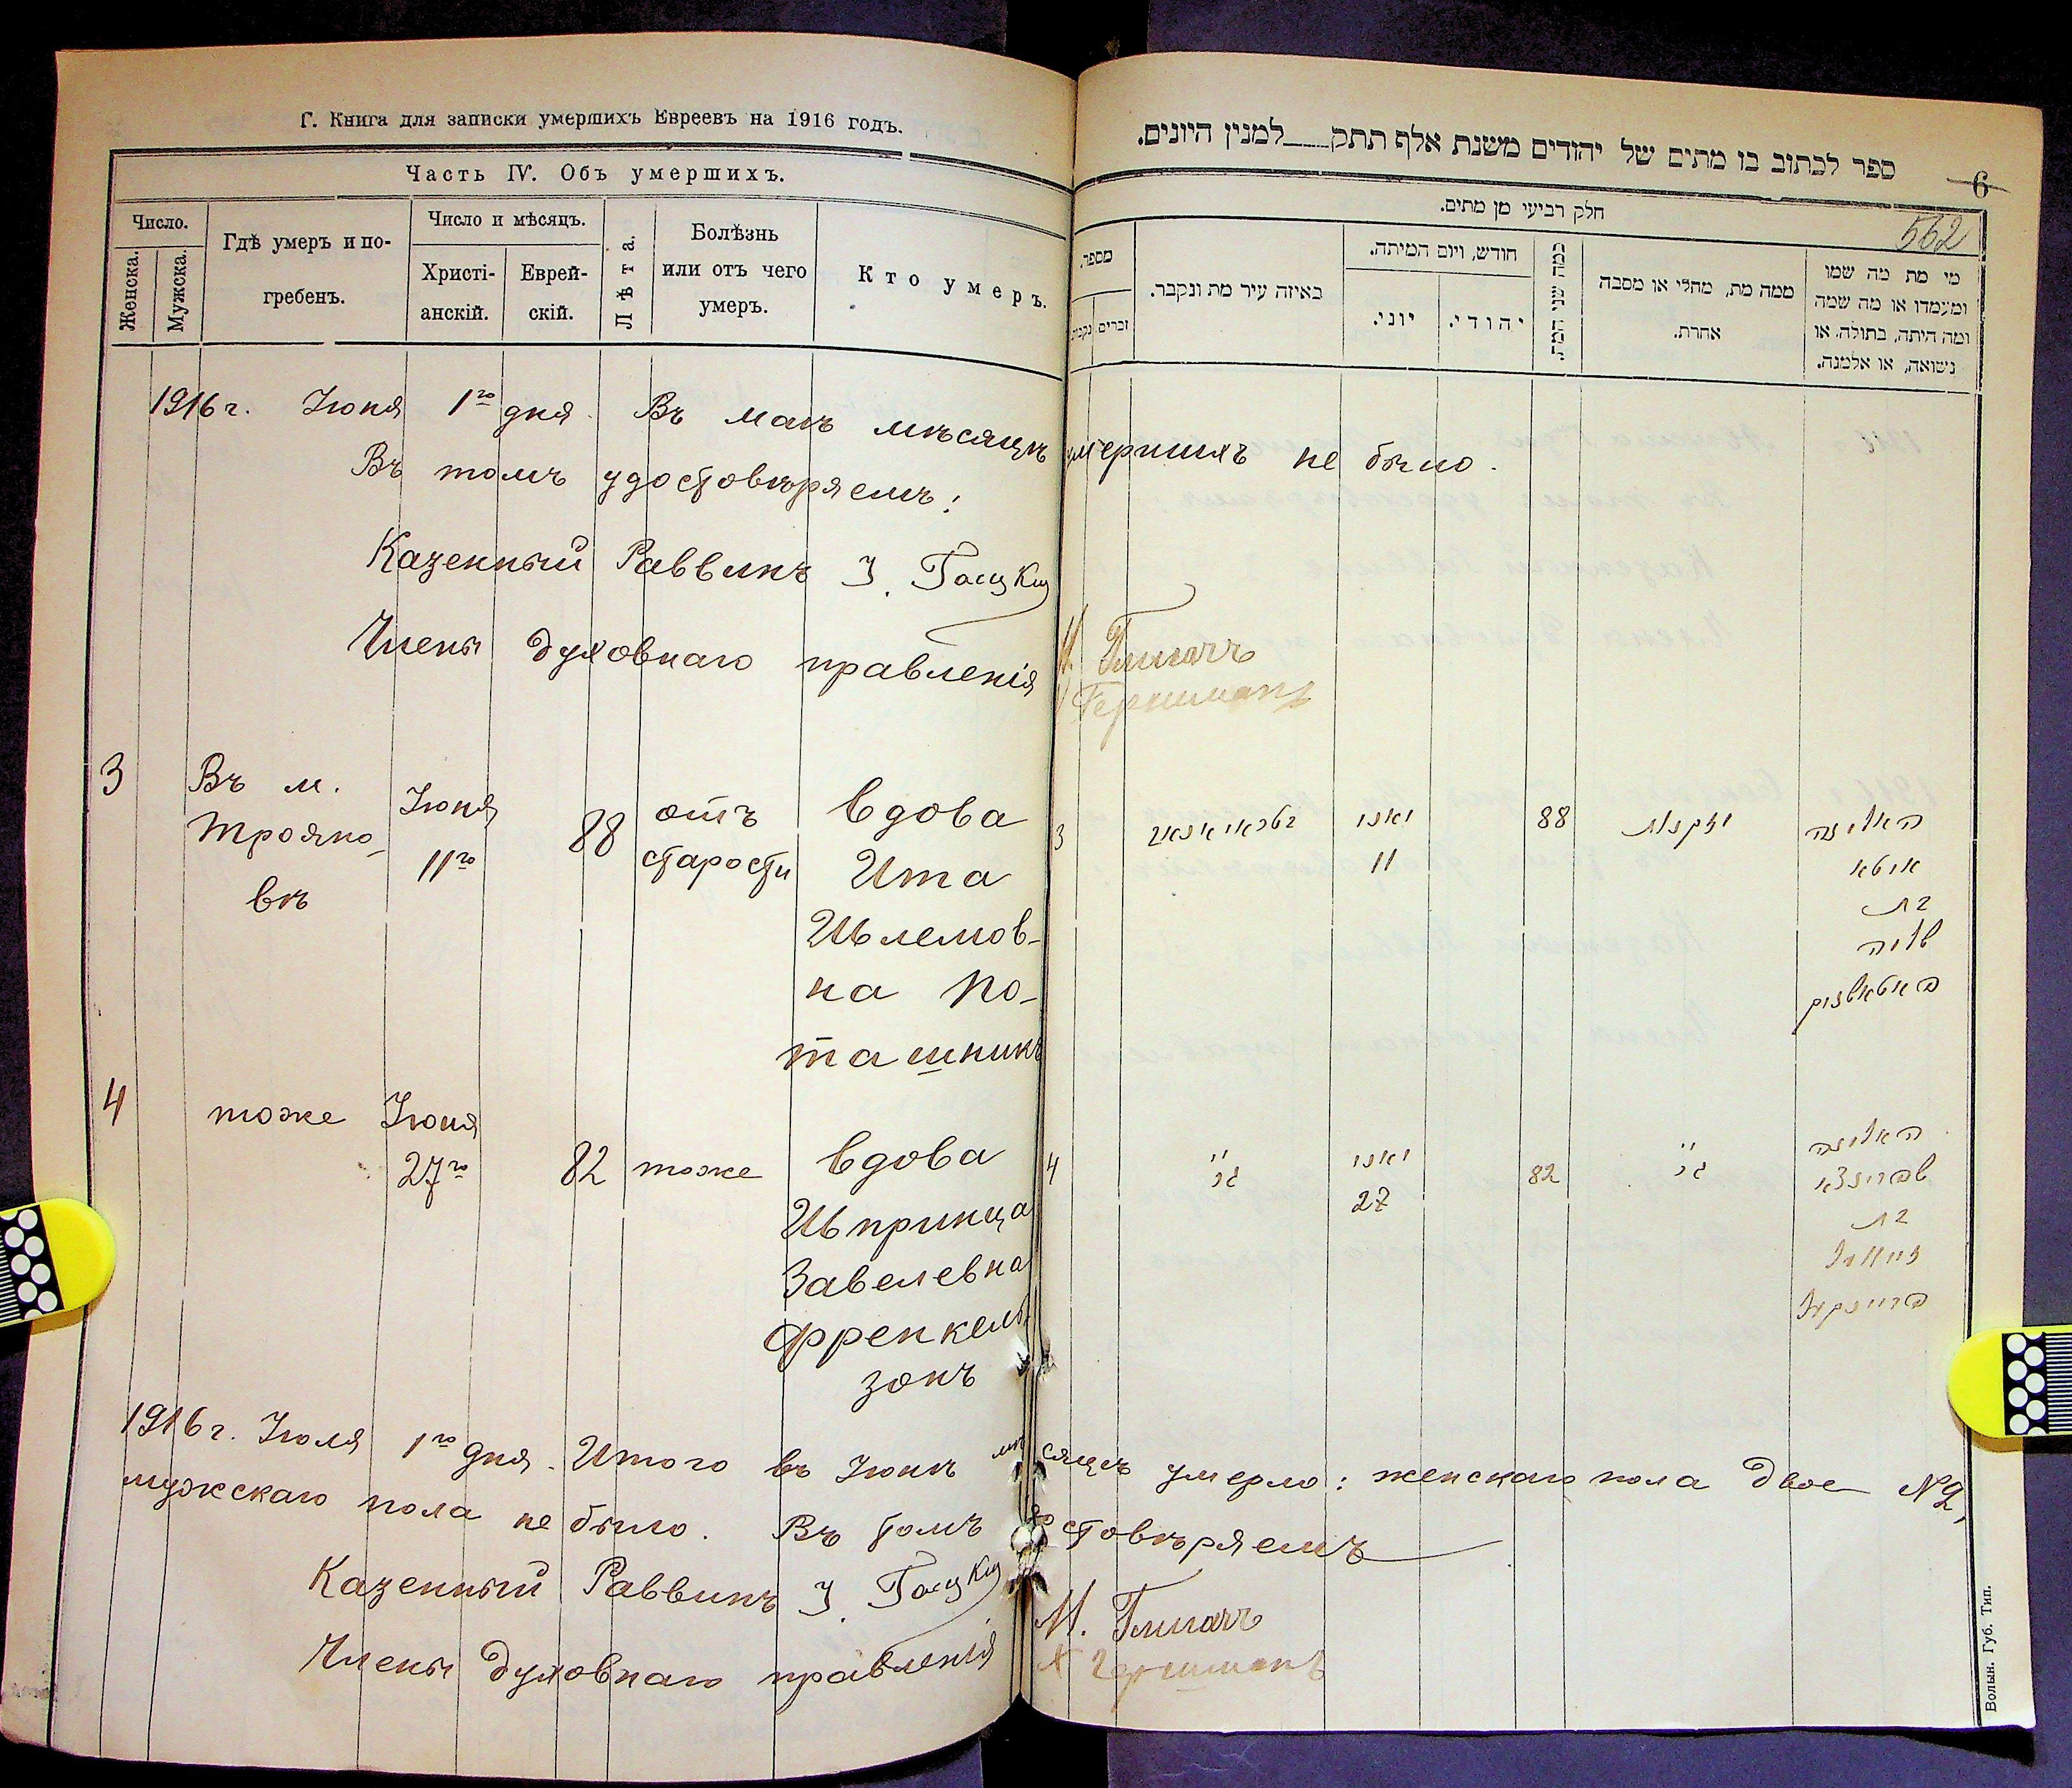 Г. Книга для записки умершихъ Евреевъ на 1916 годъ.
Часть IV. Объ умершихъ.
Число.
Женска.
Мужска.
Гдѣ умеръ и по-
гребенъ.
Число и мѣсяцъ.
Христі-
анскій.
Еврей-
скій.
Лѣта.
Болѣзнь
или отъ чего
умеръ.
Кто умеръ.
ספר לכתוב בו מתים של יהודים משנת אלף תתק למנין היונים.
6
562
חלק רביעי מן מתים.
מספר.
זכרים
באיזה עיר מת ונקבר.
חודש, ויום המיתה.
יוני.
יהודי.
כמה שני המת.
ממה מת, מחלי או מסבה
אחרת.
מי מת מה שמו
ומעמדו או מה שמה
ומה היתה, בתולה, או
נשואה, או אלמנה.
1916 г. Іюня 1го дня. Въ маѣ мѣсяцѣ умершихъ не было.
Въ томъ удостовѣряемъ:
Казенный Раввинъ
Члены духовнаго правленія
Гершманъ
3
Въ м.
Трояно-
вѣ
Іюня
11го
88
отъ
старости
вдова
Ита
Шлемов-
на По-
ташникъ
3
יוני
11
88
מזקנות
האלמנה
איטא
בת
שלמה
פאטאשניק
4
тоже
Іюня
27го
82
тоже
вдова
Шпринца
Завелевна
Френкель-
зонъ
4
״
יוני
27
82
״
האלמנה
שפרינצא
בת
1916 г. Іюля 1го дня. Итого въ Іюнѣ мѣсяцѣ умерло: женскаго пола двое №2,
мужскаго пола не было. Въ томъ удостовѣряемъ
Казенный Раввинъ
Члены духовнаго правленія
Гершманъ
Волын. Губ. Тип.